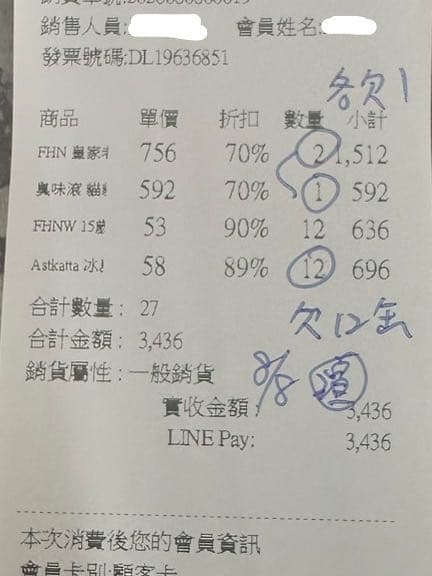 銷售人員: 會員姓名:
發票號碼:DL19636851
各欠1
商品 單價 折扣 數量 小計
FHN 皇家 756 70% 2 1,512
臭味滾 貓 592 70% 1 592
FHNW 15歲 53 90% 12 636
Astkatta 冰 58 89% 12 696
合計數量: 27
欠12缶
合計金額: 3,436
銷貨屬性:一般銷貨
8/8
實收金額: 3,436
LINE Pay: 3,436
本次消費後您的會員資訊
會員卡別:顧客卡